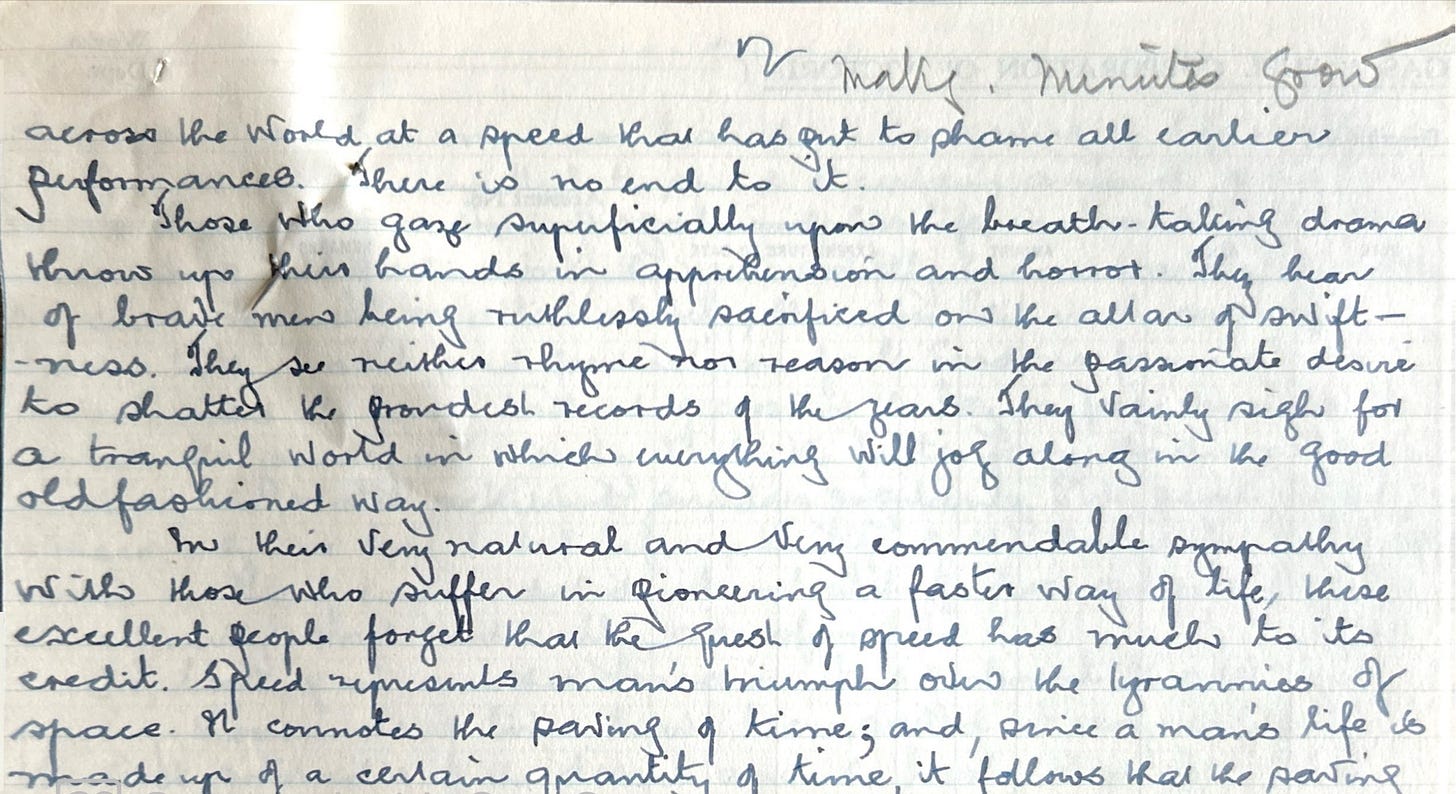 Making Minutes Grow
across the World at a speed that has put to shame all earlier
performances. There is no end to it.
Those who gaze superficially upon the breath-taking drama
throw up their hands in apprehension and horror. They hear
of brave men being ruthlessly sacrificed on the altar of swift-
-ness. They see neither rhyme nor reason in the passionate desire
to shatter the proudest records of the years. They vainly sigh for
a tranquil world in which everything will jog along in the good
oldfashioned way.
In their very natural and very commendable sympathy
with those who suffer in pioneering a faster way of life, these
excellent people forget that the quest of speed has much to its
credit. Speed represents man's triumph over the tyrannies of
space. It connotes the saving of time; and, since a man's life is
made up of a certain quantity of time, it follows that the saving